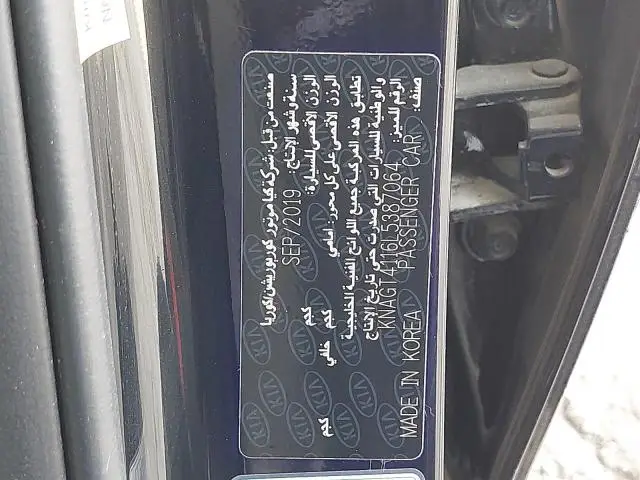 صنعت من قبل: شركة كيا موتور كوربوريشن/كوريا
سنة وشهر الإنتاج: SEP/2019
الوزن الأقصى للسيارة: كجم
الوزن الأقصى على كل محور: أمامي كجم خلفي كجم
تطابق هذه المركبة جميع اللوائح الفنية الخليجية
والوطنية للسيارات التي صدرت حتى تاريخ الإنتاج
الرقم المميز: KNAGT4116L5387064
صنف: PASSENGER CAR
MADE IN KOREA